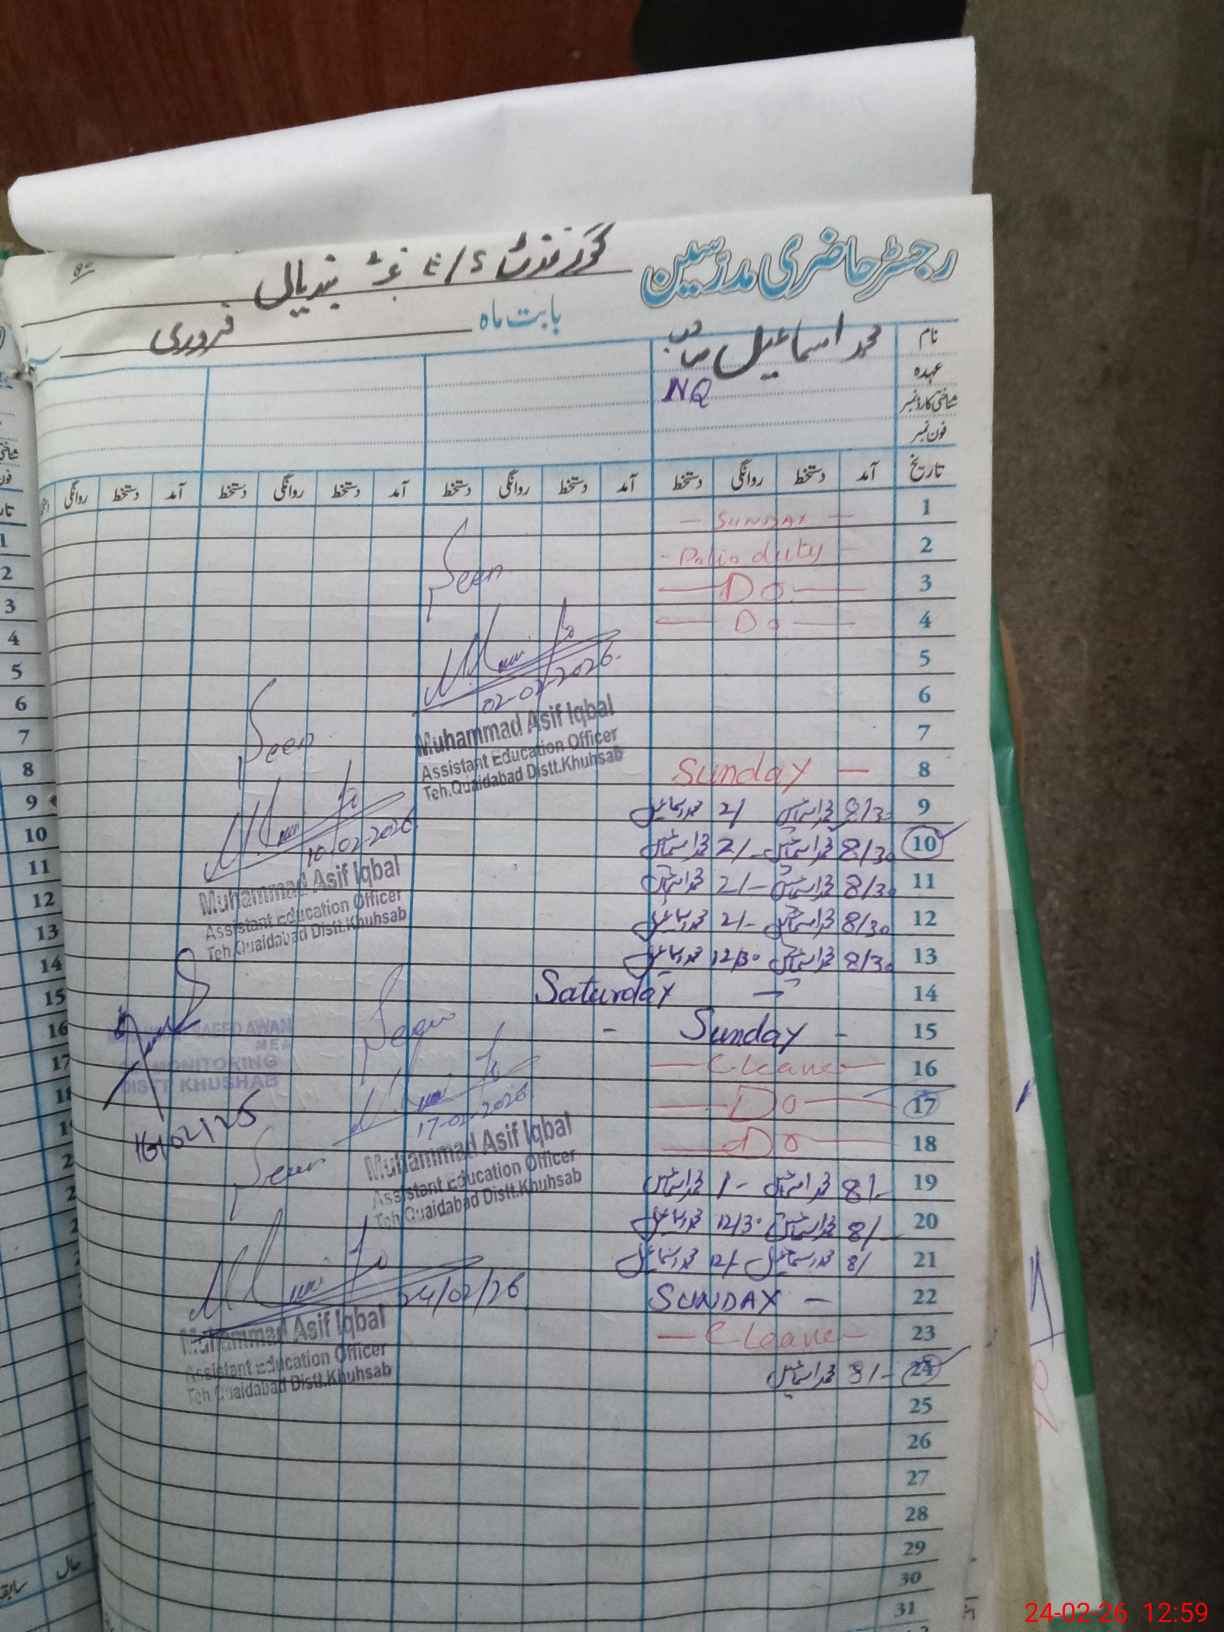 رجسٹر حاضری مدرسین گورنمنٹ E/S بندیال
بابت ماہ فروری
نام محمد اسماعیل صاحب
عہدہ NQ
شناختی کارڈ نمبر
فون نمبر
تاریخ آمد دستخط روانگی دستخط آمد دستخط روانگی دستخط آمد دستخط روانگی دستخط آمد دستخط روانگی
1 — SUNDAY —
2 - Polio duty -
3 — Do —
4 — Do —
5
6
7
8 Sunday —
9 8/30 محمد اسماعیل 2/ محمد اسماعیل
10 8/30 محمد اسماعیل 2/- محمد اسماعیل
11 8/30 محمد اسماعیل 2/- محمد اسماعیل
12 8/30 محمد اسماعیل 2/- محمد اسماعیل
13 8/30 محمد اسماعیل 12/30 محمد اسماعیل
14 Saturday —
15 - Sunday -
16 — C leave —
17 — Do —
18 — Do —
19 8/- محمد اسماعیل 1/- محمد اسماعیل
20 8/- محمد اسماعیل 12/30 محمد اسماعیل
21 8/ محمد اسماعیل 12/- محمد اسماعیل
22 SUNDAY —
23 — C leave —
24 8/- محمد اسماعیل
25
26
27
28
29
30
31
Seen
02-02-2026.
Muhammad Asif Iqbal
Assistant Education Officer
Teh.Quaidabad Distt.Khuhsab
Seen
10-02-2026
Muhammad Asif Iqbal
Assistant Education Officer
Teh.Quaidabad Distt.Khuhsab
SAEED AWAN
MEA
MONITORING
DISTT KHUSHAB
16/02/26
Seen
17-02-2026
Muhammad Asif Iqbal
Assistant Education Officer
Teh.Quaidabad Distt.Khuhsab
Seen
24/02/26
Muhammad Asif Iqbal
Assistant Education Officer
Teh.Quaidabad Distt.Khuhsab
حال
سابقہ
24-02-26 12:59